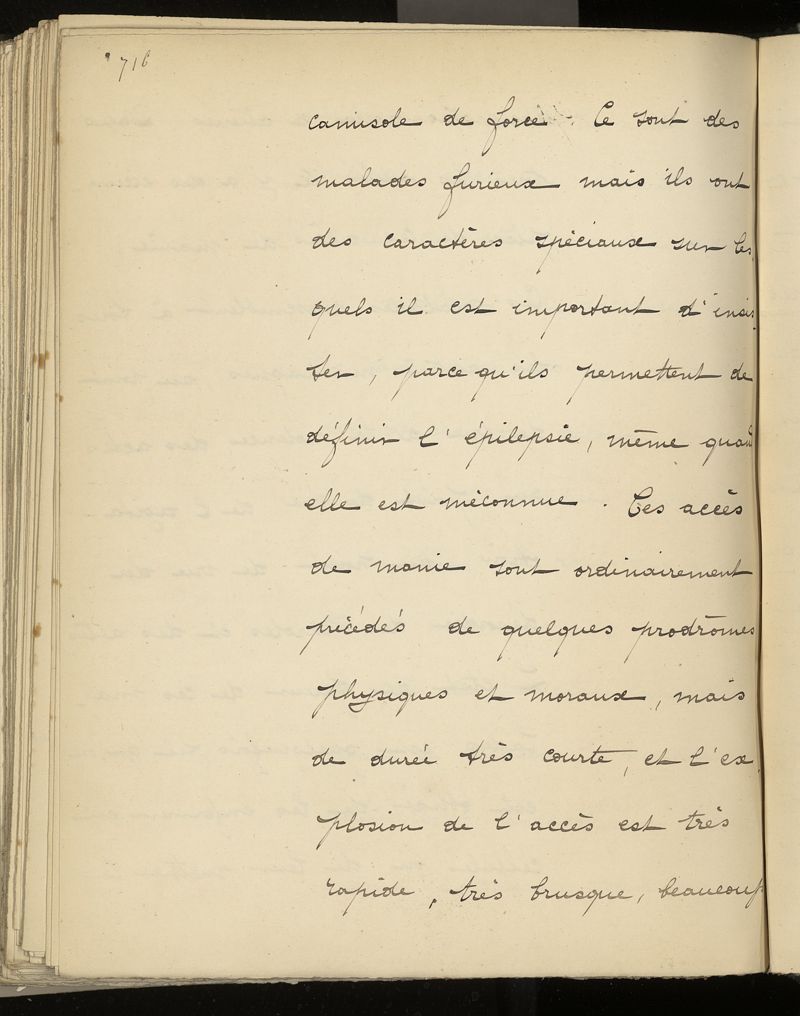 716
camisole de force. Ce sont des
malades furieux mais ils ont
des caractères spéciaux sur les
quels il est important d'insis
ter, parce qu'ils permettent de
définir l'épilepsie, même quand
elle est méconnue. Ces accès
de manie sont ordinairement
précédés de quelques prodrômes
physiques et moraux, mais
de durée très courte, et l'ex
plosion de l'accès est très
rapide, très brusque, beaucoup